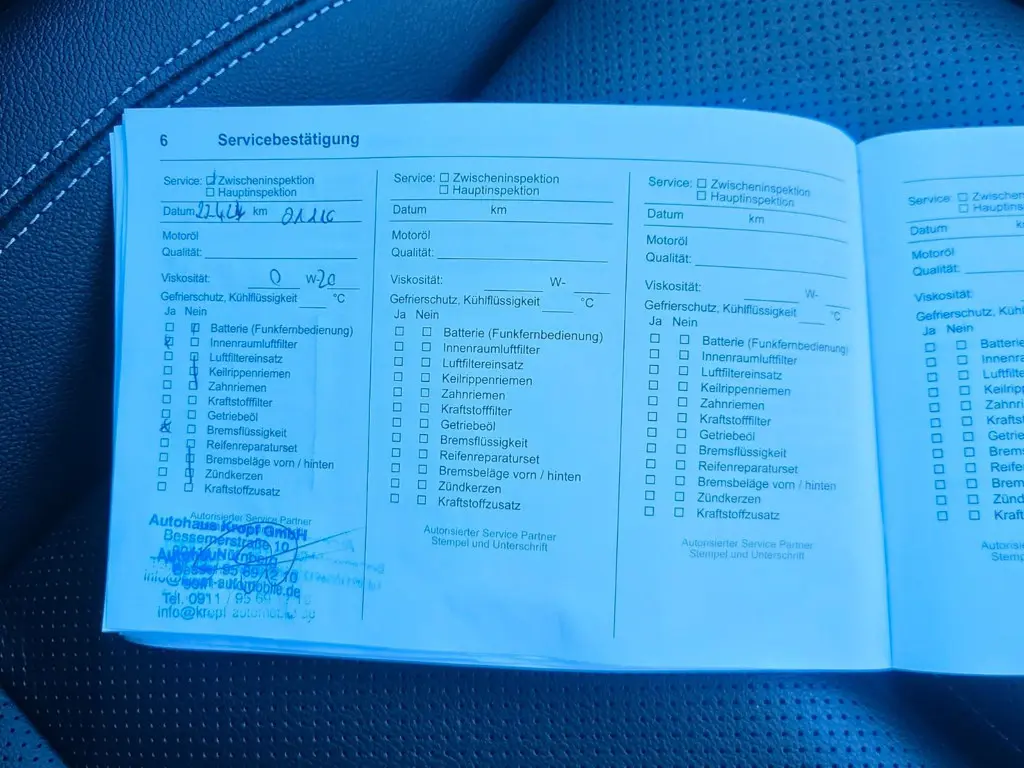 6 Servicebestätigung
Service: Zwischeninspektion
Hauptinspektion
Datum 22.4.24 km
Motoröl
Qualität:
Viskosität: 0 W-20
Gefrierschutz, Kühlflüssigkeit °C
Ja Nein
Batterie (Funkfernbedienung)
Innenraumluftfilter
Luftfiltereinsatz
Keilrippenriemen
Zahnriemen
Kraftstoffilter
Getriebeöl
Bremsflüssigkeit
Reifenreparaturset
Bremsbeläge vorn / hinten
Zündkerzen
Kraftstoffzusatz
Autorisierter Service Partner
Autohaus Kropf GmbH
Bessemerstraße 10
Tel. 0911 / 95 69
info@kropf-automobile.de
Service: Zwischeninspektion
Hauptinspektion
Datum km
Motoröl
Qualität:
Viskosität: W-
Gefrierschutz, Kühlflüssigkeit °C
Ja Nein
Batterie (Funkfernbedienung)
Innenraumluftfilter
Luftfiltereinsatz
Keilrippenriemen
Zahnriemen
Kraftstofffilter
Getriebeöl
Bremsflüssigkeit
Reifenreparaturset
Bremsbeläge vorn / hinten
Zündkerzen
Kraftstoffzusatz
Autorisierter Service Partner
Stempel und Unterschrift
Service: Zwischeninspektion
Hauptinspektion
Datum km
Motoröl
Qualität:
Viskosität: W-
Gefrierschutz, Kühlflüssigkeit °C
Ja Nein
Batterie (Funkfernbedienung)
Innenraumluftfilter
Luftfiltereinsatz
Keilrippenriemen
Zahnriemen
Kraftstofffilter
Getriebeöl
Bremsflüssigkeit
Reifenreparaturset
Bremsbeläge vorn / hinten
Zündkerzen
Kraftstoffzusatz
Autorisierter Service Partner
Stempel und Unterschrift
Service: Zwischeninsp
Hauptins
Datum
Motoröl
Qualität:
Viskosität:
Gefrierschutz, Kühl
Ja Nein
Batterie
Innenra
Luftfilte
Keilripp
Zahnri
Kraftst
Getrie
Brems
Reife
Brem
Zünd
Kraft
Autorisi
Stemp